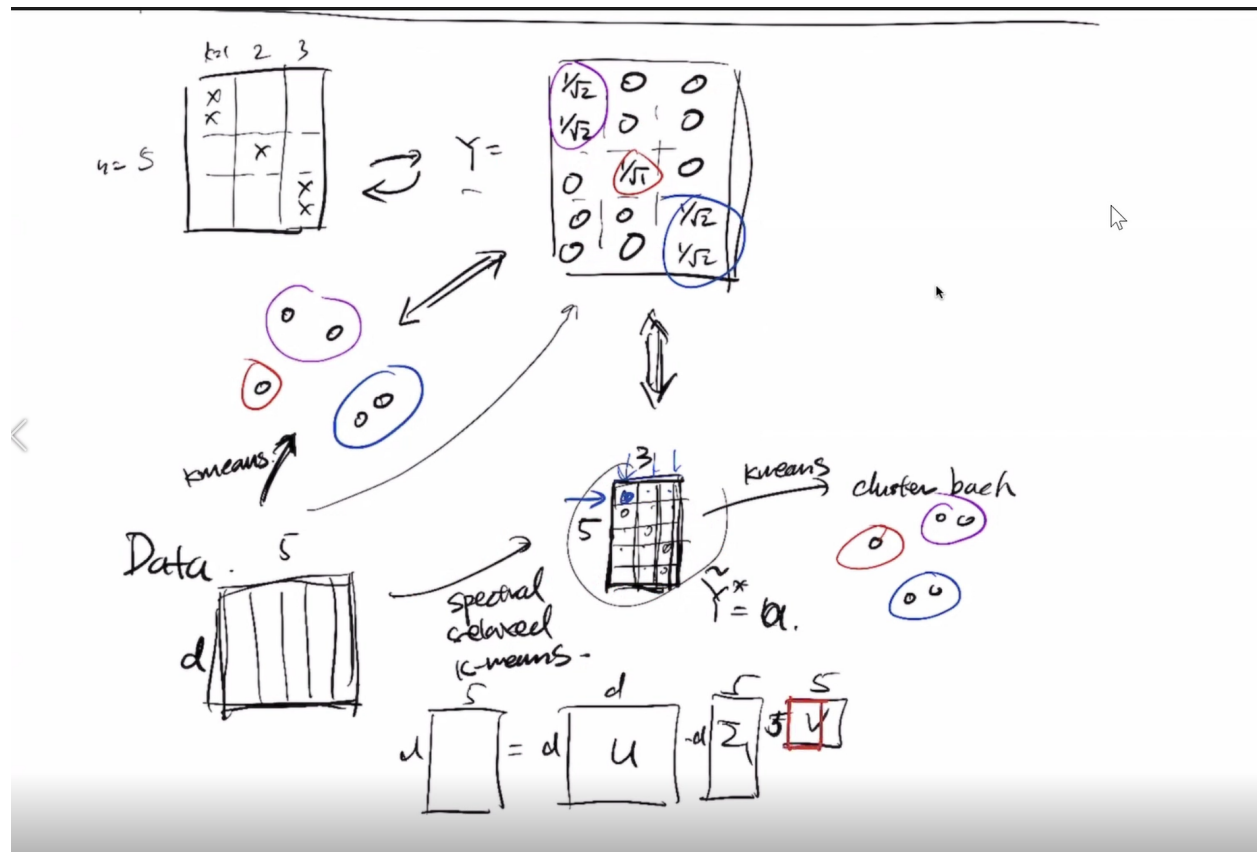 k=1 2 3
x
x
n = 5
x
x
x
Y =
1/√2 0 0
1/√2 0 0
0 1/√1 0
0 0 1/√2
0 0 1/√2
kmeans.
Data.
5
d
spectral
relaxed
k-means-
3
5
kmeans
cluster bach
Ỹ* = Q.
5
d
=
d
d
U
5
d
Σ
5
5
V